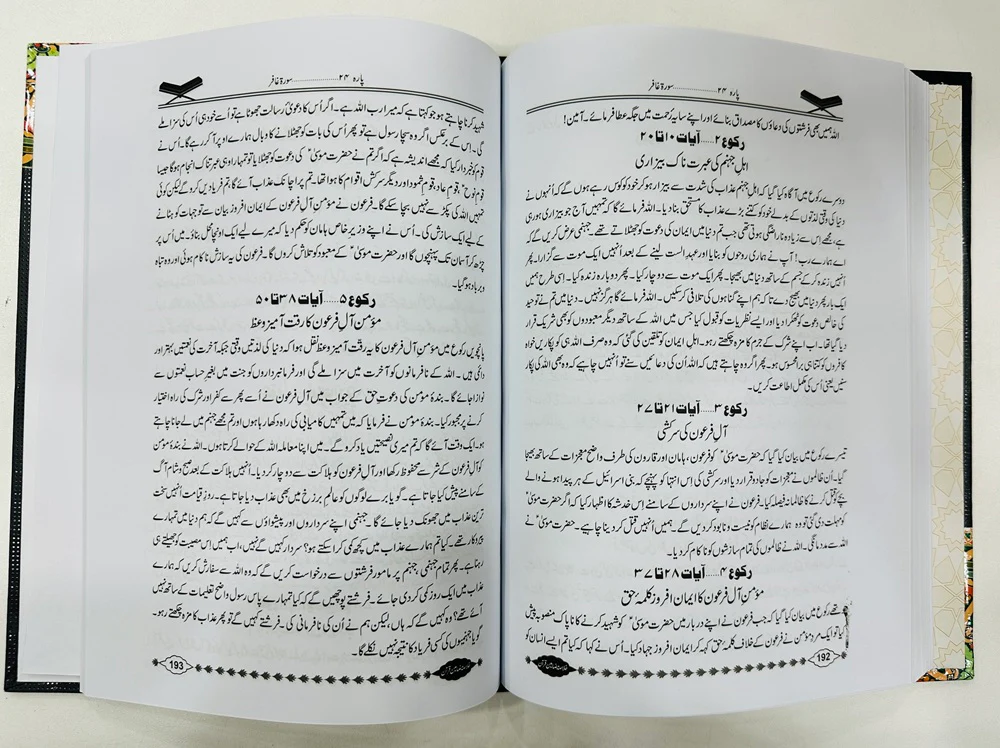 پارہ ۲۴ ........................ سورۃ غافر
اللہ ہمیں بھی فرشتوں کی دعاؤں کا مصداق بنائے اور اپنے سایہ رحمت میں جگہ عطا فرمائے۔ آمین!
رکوع ۲ ..... آیات ۱۰ تا ۲۰
اہلِ جہنم کی عبرت ناک بیزاری
دوسرے رکوع میں آگاہ کیا گیا کہ اہلِ جہنم عذاب کی شدت سے بیزار ہو کر خود کو کوس رہے ہوں گے کہ اُنہوں نے
دنیا کی وقتی لذتوں کے بدلے خود کو کتنے بڑے عذاب کا مستحق بنا دیا۔ اللہ فرمائے گا کہ تمہیں آج جو بیزاری ہو رہی
ہے، مجھے اس سے زیادہ ناراضگی ہوتی تھی جب تم دنیا میں ایمان کی دعوت کو جھٹلاتے تھے۔ جہنمی عرض کریں گے کہ
اے ہمارے رب! آپ نے ہماری روحوں کو بنایا اور عہدِ الست لینے کے بعد اُنہیں ایک موت سے گزارا۔ پھر
اُنہیں زندہ کر کے جسم کے ساتھ دنیا میں بھیجا۔ پھر ایک موت سے دوچار کیا۔ پھر دوبارہ زندہ کیا۔ اسی طرح ہمیں
ایک بار پھر دنیا میں بھیج دے تاکہ ہم اپنے گناہوں کی تلافی کر سکیں۔ اللہ فرمائے گا ہرگز نہیں۔ دنیا میں تم نے توحید
کی خالص دعوت کو ٹھکرا دیا اور ایسے نظریات کو قبول کیا جس میں اللہ کے ساتھ دیگر معبودوں کو بھی شریک قرار
دیا گیا تھا۔ اب اپنے شرک کے جرم کا مزہ چکھتے رہو۔ اہلِ ایمان کو تلقین کی گئی کہ وہ صرف اللہ ہی کو پکاریں خواہ
کافروں کو کتنا ہی برا محسوس ہو۔ پھر اگر وہ چاہتے ہیں کہ اللہ اُن کی دعائیں سنے تو اُنہیں چاہیے کہ وہ بھی اللہ کی پکار
سنیں یعنی اُس کی مکمل اطاعت کریں۔
رکوع ۳ ..... آیات ۲۱ تا ۲۷
آلِ فرعون کی سرکشی
تیسرے رکوع میں بیان کیا گیا کہ حضرت موسیٰؑ کو فرعون، ہامان اور قارون کی طرف واضح معجزات کے ساتھ بھیجا
گیا۔ اُن ظالموں نے معجزات کو جادو قرار دیا اور سرکشی کی اس انتہا کو پہنچے کہ بنی اسرائیل کے ہر پیدا ہونے والے
بچے کو قتل کرنے کا ظالمانہ فیصلہ کیا۔ فرعون نے اپنے سرداروں کے سامنے اِس خدشہ کا اظہار کیا کہ اگر حضرت موسیٰؑ
کو مہلت دی گئی تو وہ ہمارے نظام کو نیست و نابود کر دیں گے۔ ہمیں اُنہیں قتل کر دینا چاہیے۔ حضرت موسیٰؑ نے
اللہ سے مدد مانگی۔ اللہ نے ظالموں کی تمام سازشوں کو ناکام کر دیا۔
رکوع ۴ ..... آیات ۲۸ تا ۳۷
مؤمن آلِ فرعون کا ایمان افروز کلمۂ حق
چوتھے رکوع میں بیان کیا گیا کہ جب فرعون نے اپنے دربار میں حضرت موسیٰؑ کو شہید کرنے کا ناپاک منصوبہ پیش
کیا تو ایک مردِ مؤمن نے فرعون کے خلاف کلمۂ حق کہہ کر ایمان افروز جہاد کیا۔ اُس نے کہا کہ کیا تم ایسے انسان کو
192
پارہ ۲۴ ........................ سورۃ غافر
شہید کرنا چاہتے ہو جو کہتا ہے کہ میرا رب اللہ ہے۔ اگر اُس کا دعویٰ رسالت جھوٹا ہے تو اُسے خود ہی اُس کی سزا ملے
گی۔ اِس کے برعکس اگر وہ سچا رسول ہے تو پھر اُس کی بات کو جھٹلانے کا وبال ہمارے اوپر آ کر رہے گا۔ اُس نے
قوم کو خبردار کیا کہ مجھے اندیشہ ہے کہ اگر تم نے حضرت موسیٰؑ کی دعوت کو جھٹلایا تو تمہارا وہی عبرتناک انجام ہوگا جیسا
قومِ نوحؑ، قومِ عاد، قومِ ثمود اور دیگر سرکش اقوام کا ہوا تھا۔ تم پر اچانک عذاب آئے گا، تم فریاد یں کرو گے لیکن کوئی
تمہیں اللہ کی پکڑ سے نہیں بچا سکے گا۔ فرعون نے مؤمن آلِ فرعون کے ایمان افروز بیان سے توجہات کو ہٹانے
کے لیے ایک سازش کی۔ اُس نے اپنے وزیرِ خاص ہامان کو حکم دیا کہ میرے لیے ایک اونچا محل بناؤ۔ میں اُس پر
چڑھ کر آسمان تک پہنچوں گا اور حضرت موسیٰؑ کے معبود کو تلاش کروں گا۔ فرعون کی یہ سازش ناکام ہوئی اور وہ تباہ
و برباد ہو گیا۔
رکوع ۵ ..... آیات ۳۸ تا ۵۰
مؤمن آلِ فرعون کا رقت آمیز وعظ
پانچویں رکوع میں مؤمن آلِ فرعون کا یہ رقت آمیز وعظ نقل ہوا کہ دنیا کی لذتیں وقتی جبکہ آخرت کی نعمتیں بہتر اور
دائمی ہیں۔ اللہ کے نافرمانوں کو آخرت میں سزا ملے گی اور فرمانبرداروں کو جنت میں بغیر حساب نعمتوں سے
نوازا جائے گا۔ بندۂ مؤمن کی دعوتِ حق کے جواب میں آلِ فرعون نے اُسے پھر سے کفر اور شرک کی راہ اختیار
کرنے پر مجبور کیا۔ بندۂ مؤمن نے فرمایا کہ میں تمہیں کامیابی کی راہ دکھا رہا ہوں اور تم مجھے جہنم میں لے جانا چاہتے
ہو۔ ایک وقت آئے گا کہ تم میری نصیحتیں یاد کرو گے۔ میں اپنا معاملہ اللہ کے حوالے کرتا ہوں۔ اللہ نے بندۂ مؤمن
کو آلِ فرعون کے شر سے محفوظ رکھا اور آلِ فرعون کو ہلاکت سے دوچار کر دیا۔ اُنہیں ہلاکت کے بعد صبح و شام آگ
کے سامنے پیش کیا جاتا ہے۔ گویا برے لوگوں کو عالمِ برزخ میں بھی عذاب دیا جاتا ہے۔ روزِ قیامت اُنہیں سخت
ترین عذاب میں جھونک دیا جائے گا۔ جہنمی اپنے سرداروں اور پیشواؤں سے کہیں گے کہ ہم دنیا میں تمہارے
پیروکار تھے۔ کیا تم ہمارے عذاب میں کچھ کمی کرا سکتے ہو؟ سردار کہیں گے نہیں، اب ہمیں اِس مصیبت کو جھیلتے ہی
رہنا ہے۔ پھر تمام جہنمی، جہنم پر مامور فرشتوں سے درخواست کریں گے کہ وہ اللہ سے سفارش کریں کہ ہمارے
عذاب میں ایک روز کمی کر دی جائے۔ فرشتے پوچھیں گے کہ کیا تمہارے پاس رسول واضح تعلیمات کے ساتھ نہیں
آئے تھے؟ وہ کہیں گے کہ ہاں، لیکن ہم نے اُن کی نافرمانی کی۔ فرشتے کہیں گے تو پھر عذاب کا مزہ چکھتے رہو۔
گویا جہنمیوں کی کسی فریاد کا نتیجہ نہیں نکلے گا۔
193